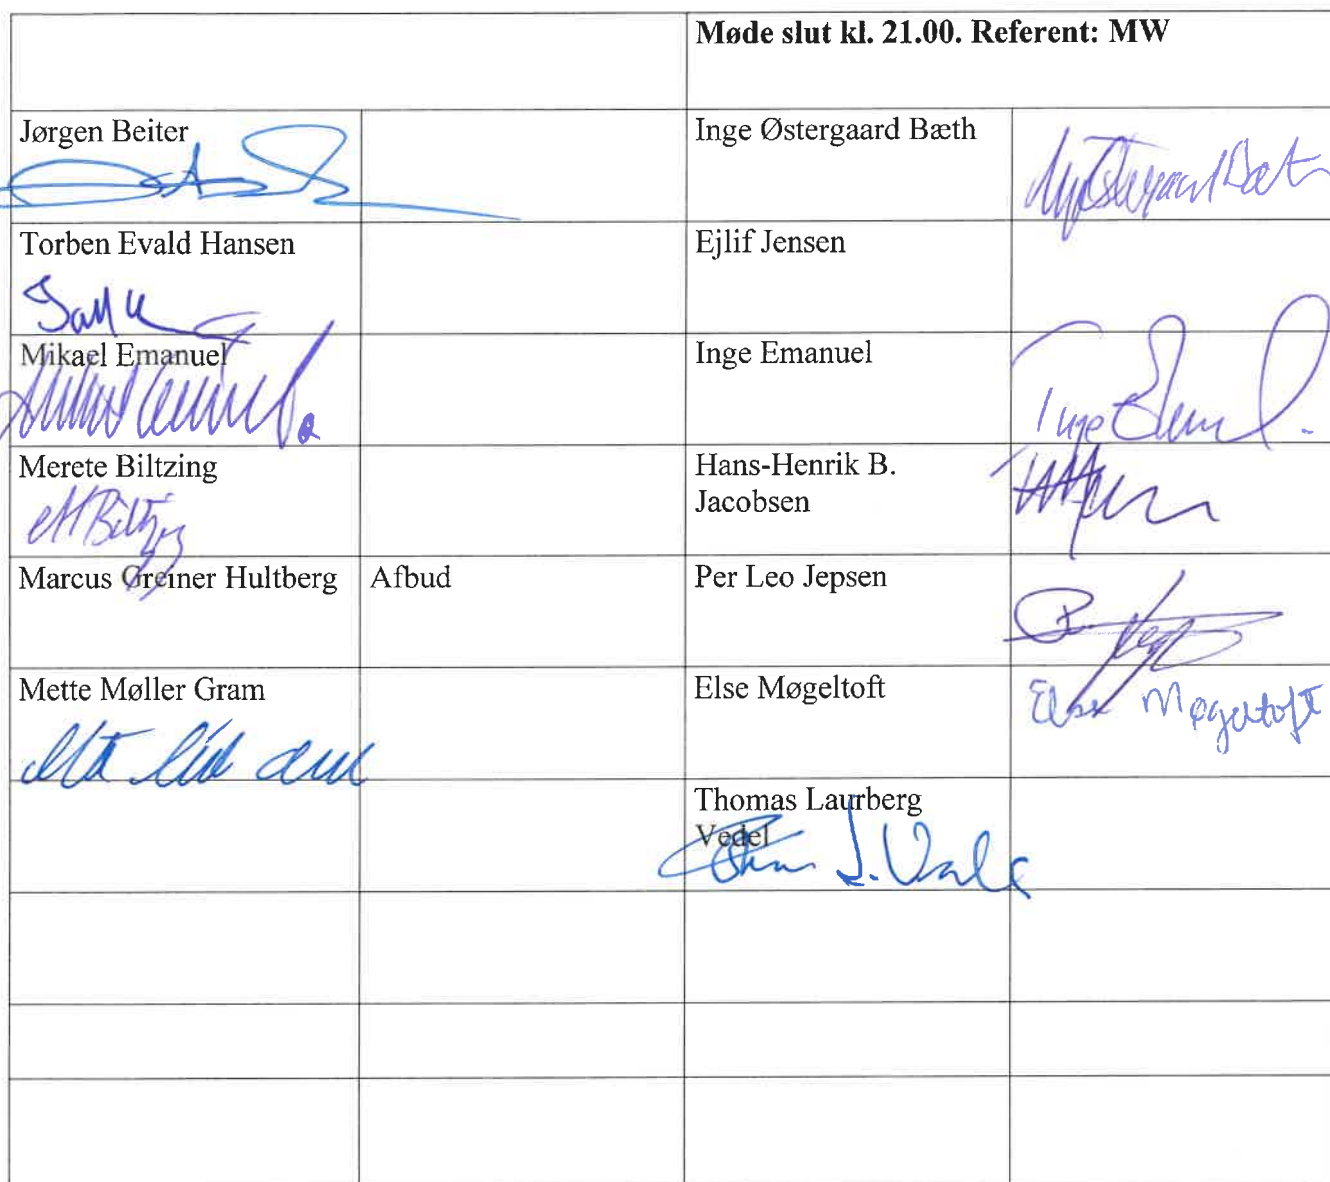 Møde slut kl. 21.00. Referent: MW
Jørgen Beiter
Inge Østergaard Bæth
Torben Evald Hansen
Ejlif Jensen
Mikael Emanuel
Inge Emanuel
Merete Biltzing
MBiltzing
Hans-Henrik B.
Jacobsen
Marcus Greiner Hultberg
Afbud
Per Leo Jepsen
Mette Møller Gram
Else Møgeltoft
Else Møgeltoft
Thomas Laurberg
Vedel